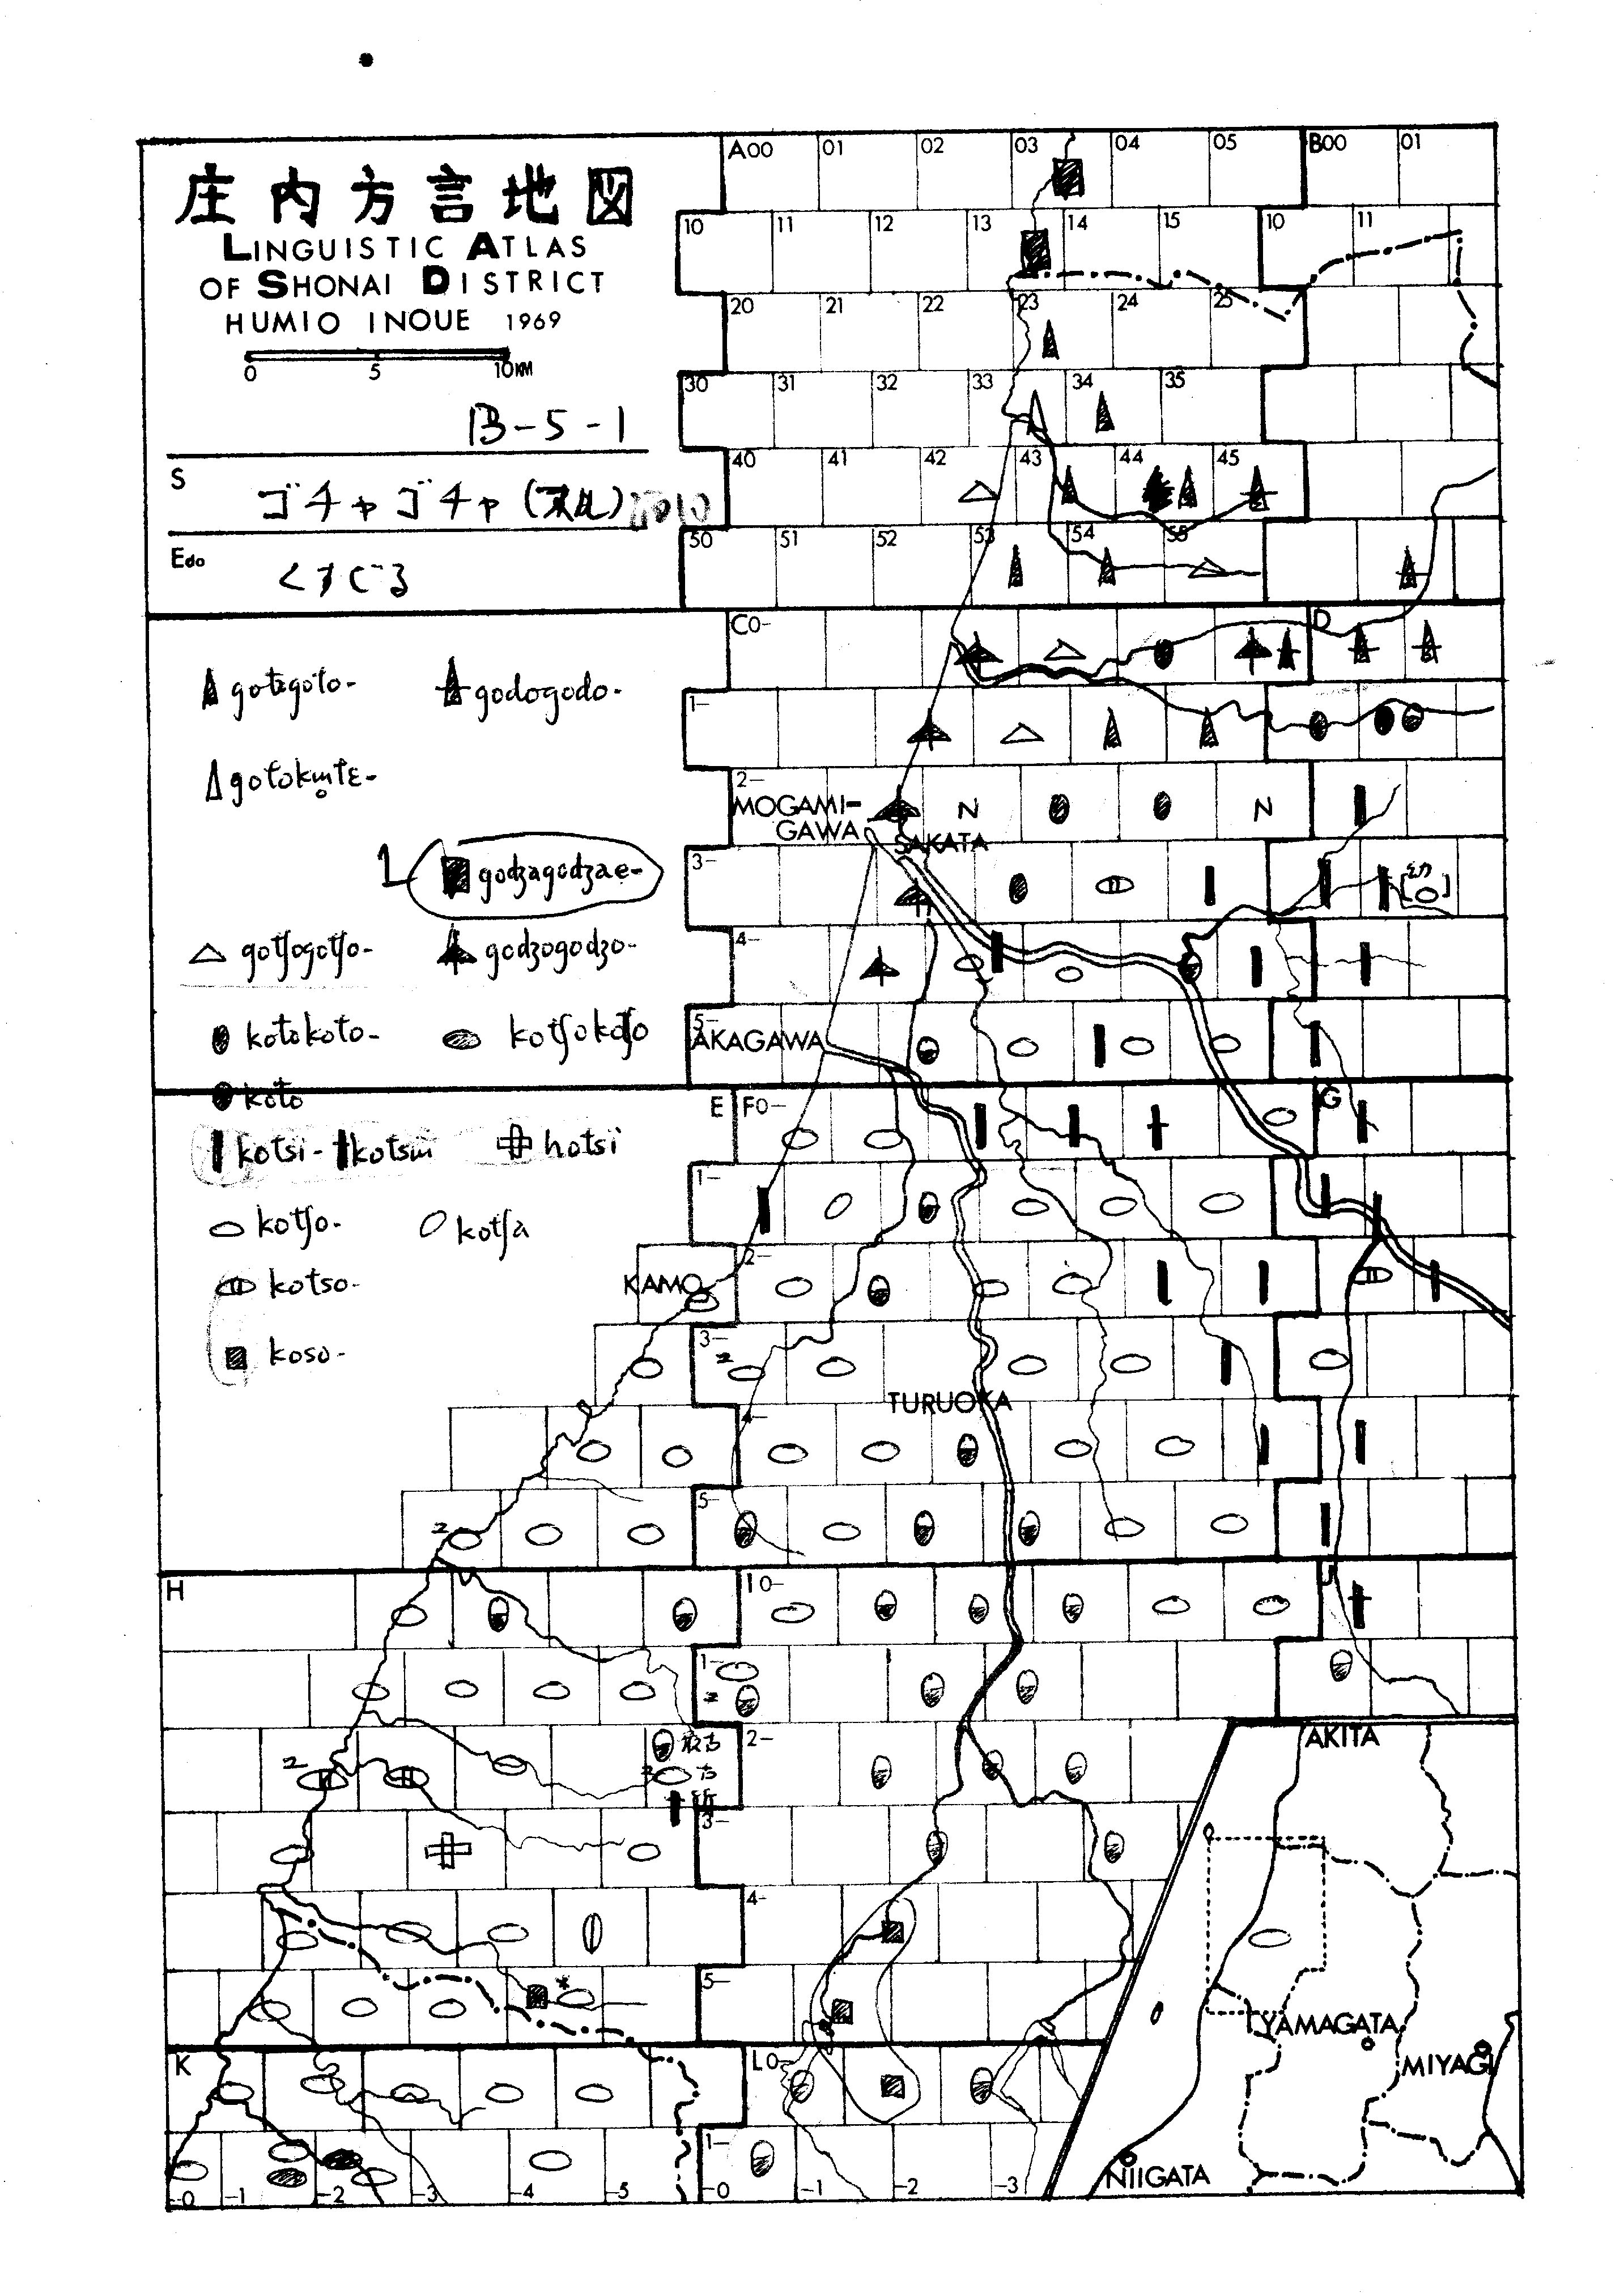 庄内方言地図
LINGUISTIC ATLAS
OF SHONAI DISTRICT
HUMIO INOUE 1969
0 5 10KM
B-5-1
S
ゴチャゴチャ
Edo
くすぐる
gotogoto-
godogodo-
1
godʒagodʒae-
gotʃogotʃo-
godʒogodʒo-
kotokoto-
kotʃokotʃo
koto
kotsi-
kotsɯ
hotsi
kotʃo-
kotʃa
kotso-
koso-
A00 01 02 03 04 05 B00 01
10 11 12 13 14 15 10 11
20 21 22 23 24 25
30 31 32 33 34 35
40 41 42 43 44 45
50 51 52 53 54 55
C0- D
1-
2-
MOGAMI-
GAWA
N N
SAKATA
3-
4-
5-
AKAGAWA
E F0- G
1-
2-
KAMO
3-
2
TURUOKA
4-
5-
2
H I0- J
1-
2
2-
2
2
3-
4-
5-
*
K L0-
1-
-0 -1 -2 -3 -4 -5 -0 -1 -2 -3
AKITA
YAMAGATA
MIYAGI
NIIGATA